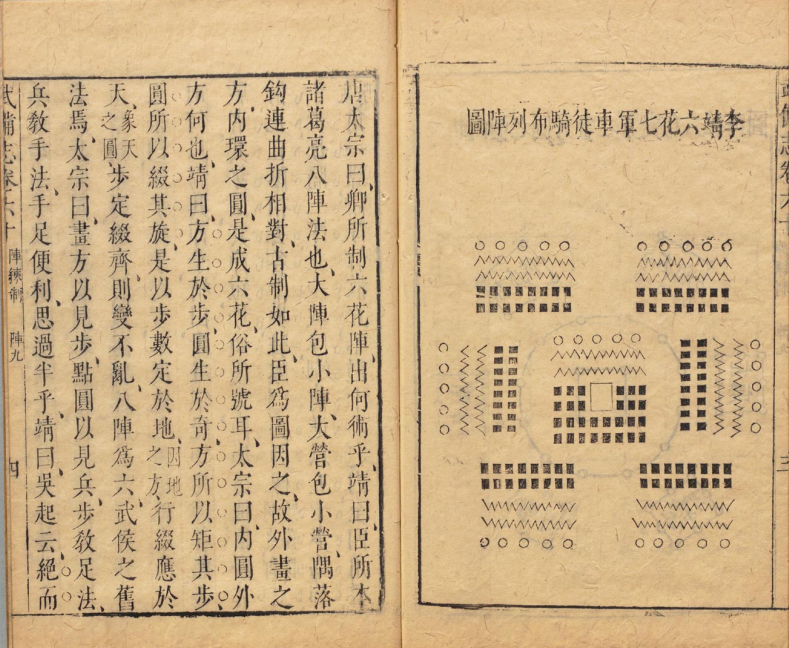 武備志卷六十
李靖六花七軍車徒騎布列陣圖
三
唐太宗曰卿所制六花陣出何術乎靖曰臣所本
諸葛亮八陣法也大陣包小陣大營包小營隅落
鈎連曲折相對古制如此臣爲圖因之故外畫之
方内環之圓是成六花俗所號耳太宗曰内圓外
方何也靖曰方生於步圓生於奇方所以矩其步
圓所以綴其旋是以步數定於地之方因地行綴應於
天之圓象天步定綴齊則變不亂八陣爲六武侯之舊
法焉太宗曰畫方以見步點圓以見兵步教足法
兵教手法手足便利思過半乎靖曰吳起云絕而
武備志卷六十 陣練制 陣九 四